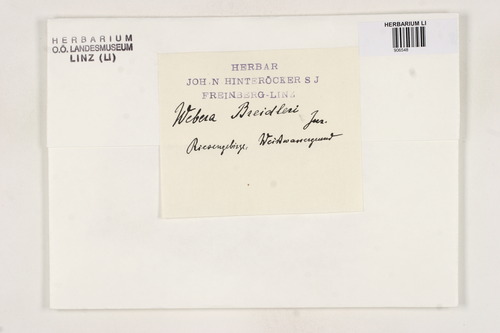 HERBARIUM
O.Ö. LANDESMUSEUM
LINZ (LI)
HERBARIUM LI
HERBAR
JOH. N HINTERÖCKER S J
FREINBERG-LINZ
Webera Breidleri Jur.
Riesengebirge, Weißwassergrund